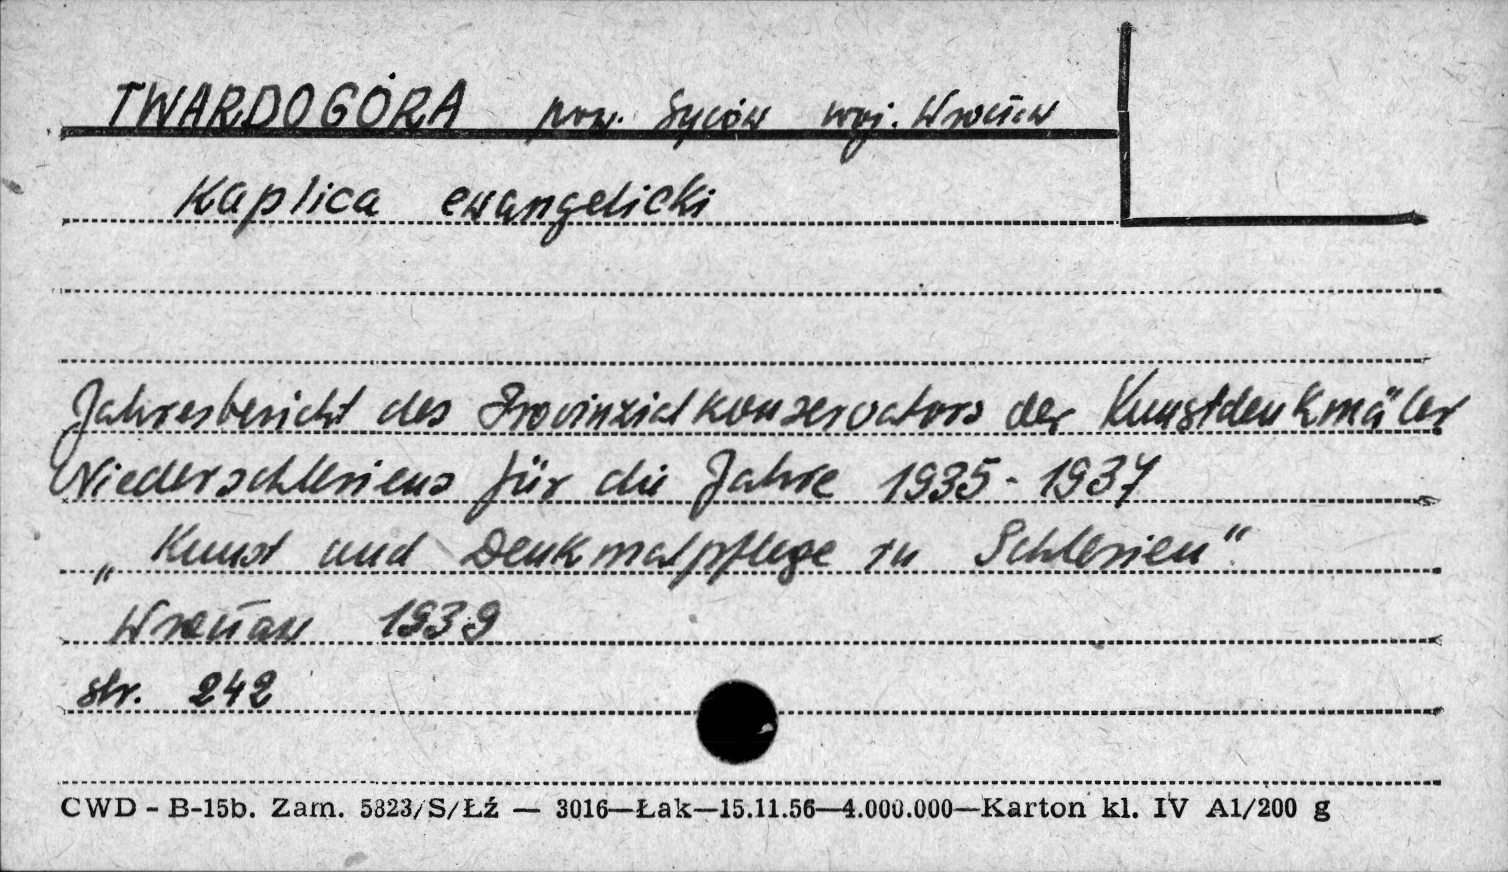 TWARDOGÓRA pow. Syców woj. Wrocław
Kaplica ewangelicki
Jahresbericht des Provinzialkonservators der Kunstdenkmäler
Niederschlesiens für die Jahre 1935-1937
„Kunst und Denkmalpflege in Schlesien"
Wrocław 1939
str. 242
CWD - B-15b. Zam. 5823/S/Łź — 3016—Łak—15.11.56—4.000.000—Karton kl. IV A1/200 g